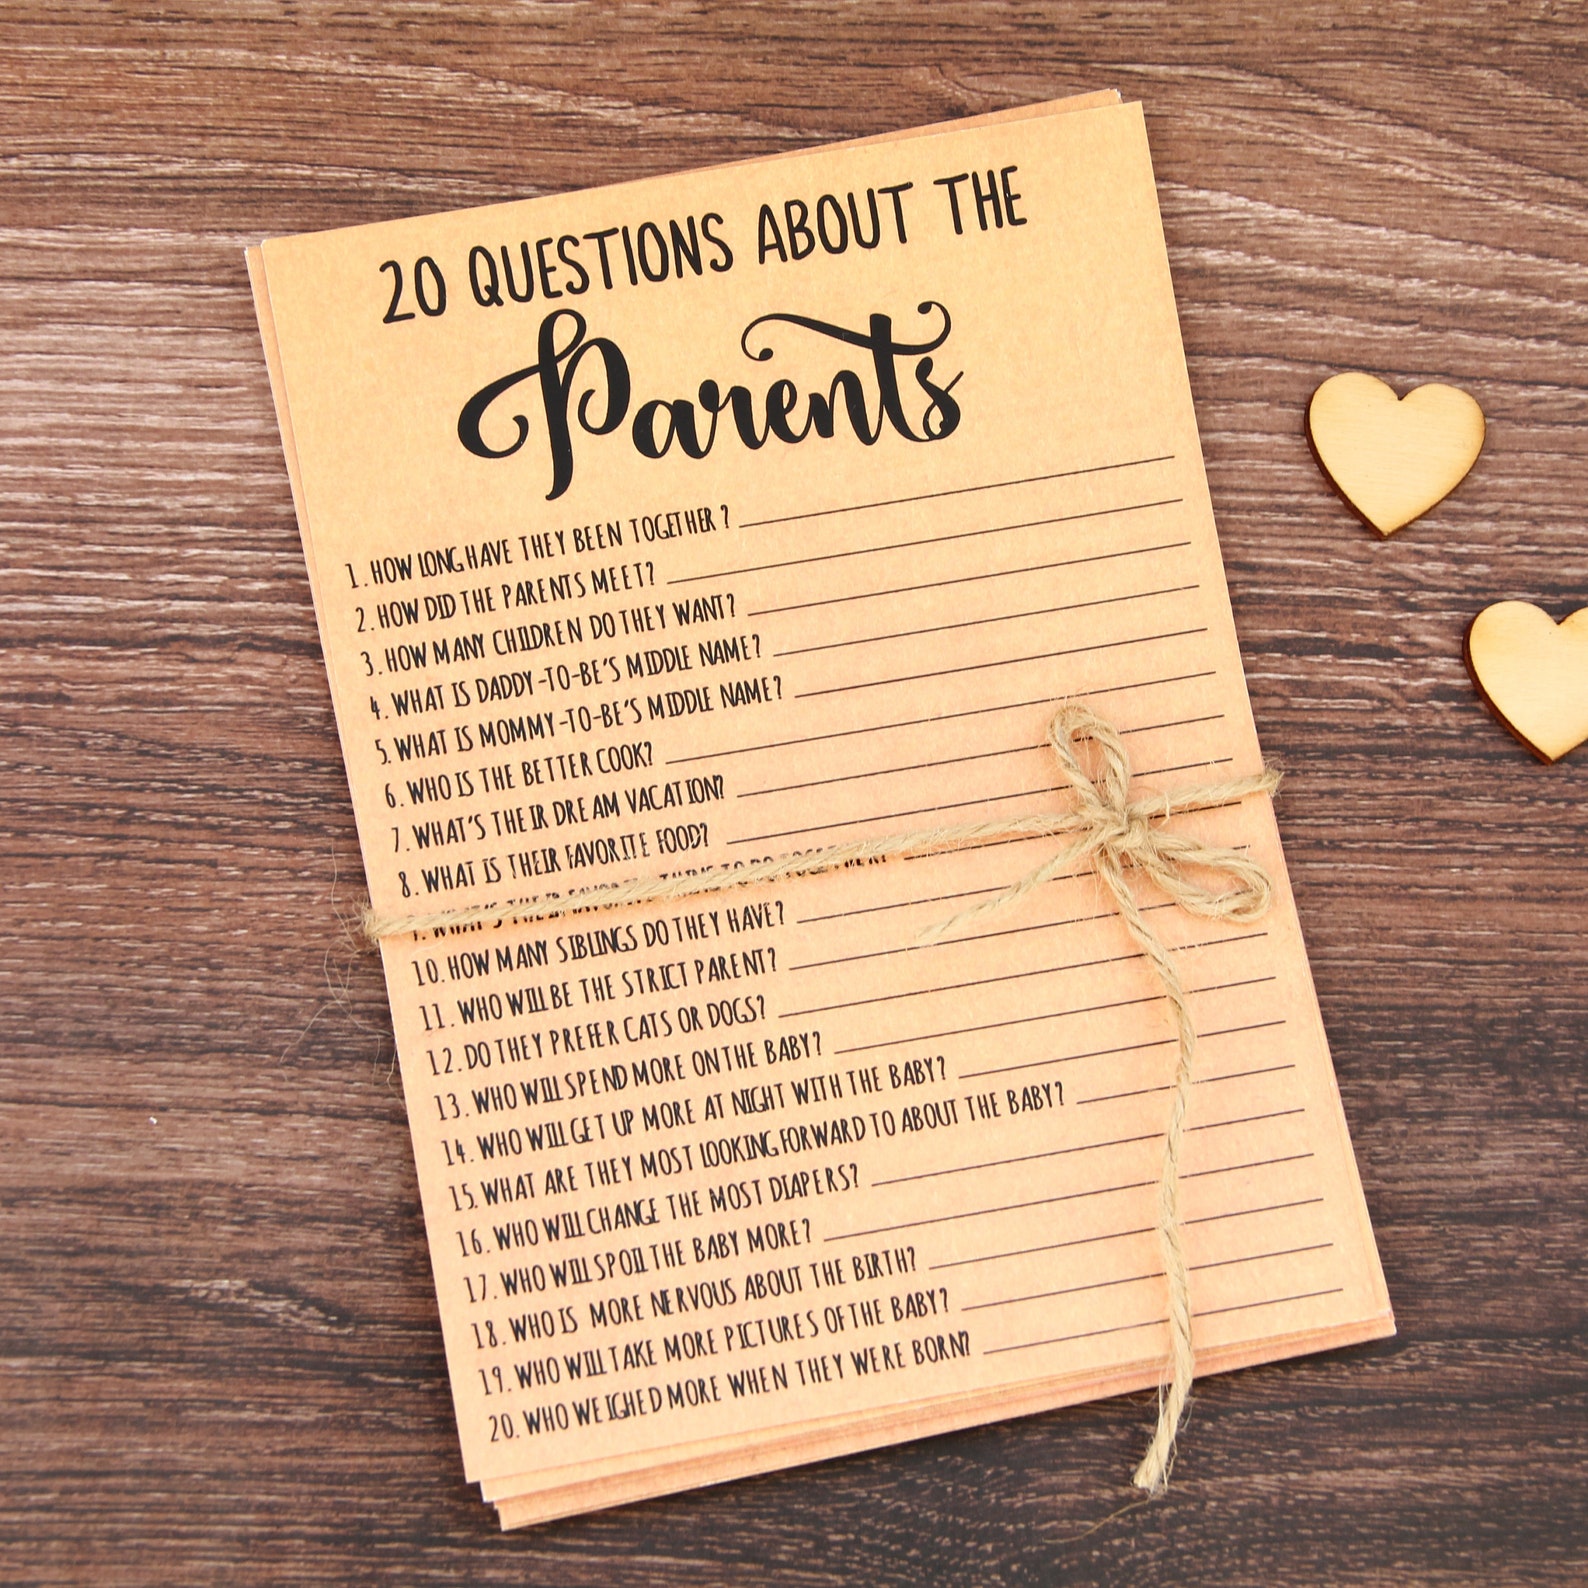 20 QUESTIONS ABOUT THE
Parents
1. HOW LONG HAVE THEY BEEN TOGETHER ?
2. HOW DID THE PARENTS MEET?
3. HOW MANY CHILDREN DO THEY WANT?
4. WHAT IS DADDY-TO-BE'S MIDDLE NAME?
5. WHAT IS MOMMY-TO-BE'S MIDDLE NAME?
6. WHO IS THE BETTER COOK?
7. WHAT'S THEIR DREAM VACATION?
8. WHAT IS THEIR FAVORITE FOOD?
9. WHAT'S THEIR FAVORITE THING TO DO TOGETHER?
10. HOW MANY SIBLINGS DO THEY HAVE?
11. WHO WILL BE THE STRICT PARENT?
12. DO THEY PREFER CATS OR DOGS?
13. WHO WILL SPEND MORE ON THE BABY?
14. WHO WILL GET UP MORE AT NIGHT WITH THE BABY?
15. WHAT ARE THEY MOST LOOKING FORWARD TO ABOUT THE BABY?
16. WHO WILL CHANGE THE MOST DIAPERS?
17. WHO WILL SPOIL THE BABY MORE?
18. WHO IS MORE NERVOUS ABOUT THE BIRTH?
19. WHO WILL TAKE MORE PICTURES OF THE BABY?
20. WHO WEIGHED MORE WHEN THEY WERE BORN?